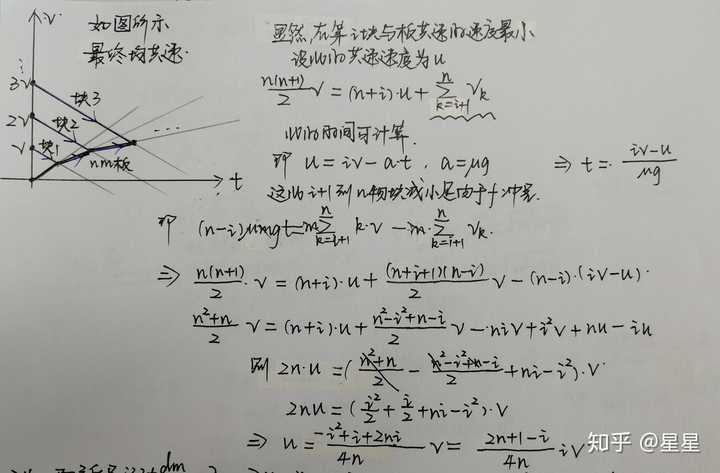 v
如图所示
最终均共速.
⋮
3v
2v
v
块3
块2
块1
nm板
...
t
显然,在第i块与板共速时速度最小
设此时共速速度为u
n(n+1)/2 v = (n+i)·u + ∑_{k=i+1}^{n} v_k
此时时间可计算.
即 u = iv - a·t , a = μg ⇒ t = (iv-u)/μg
这此i+1到n物块减小是由于f冲量.
即 (n-i)μmgt = m∑_{k=i+1}^{n} k·v - m·∑_{k=i+1}^{n} v_k.
⇒ n(n+1)/2 ·v = (n+i)·u + (n+i+1)(n-i)/2 v - (n-i)·(iv-u)·
(n²+n)/2 v = (n+i)·u + (n²-i²+n-i)/2 v - niv + i²v + nu - iu
则 2n·u = ( (n²+n)/2 - (n²-i²+n-i)/2 + ni - i² )·v
2nu = ( i²/2 + i/2 + ni - i² )·v
⇒ u = (-i²+i+2ni)/4n v = (2n+1-i)/4n iv
知乎 @星星